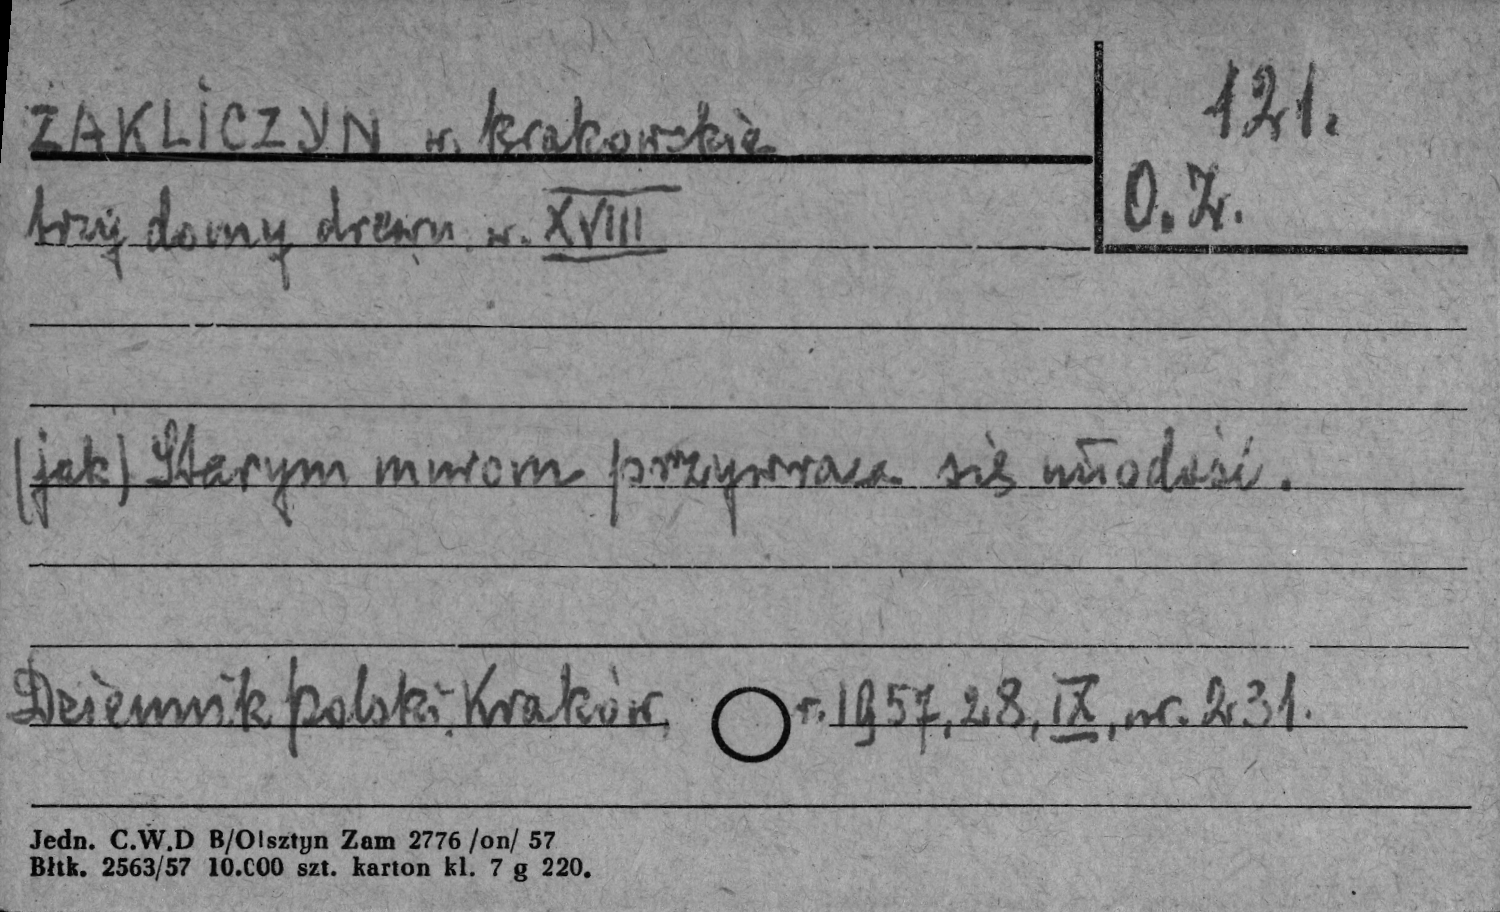 ZAKLICZYN w. krakowskie
121.
O. Z.
trzy domy drewn. w. XVIII
(jak) Starym murom przywraca się młodość.
Dziennik Polski, Kraków, r. 1957, 28, IX, nr. 231.
Jedn. C.W.D B/Olsztyn Zam 2776 /on/ 57
Błtk. 2563/57 10.000 szt. karton kl. 7 g 220.